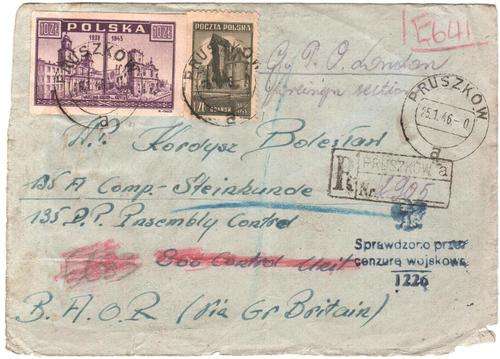 10 ZŁ POLSKA 10 ZŁ
1939 1945
POCZTA POLSKA
GDAŃSK
PRUSZKÓW
a
PRUSZKÓW
a
E641
G.P.O. London
Foreign section
PRUSZKÓW
25.1.46-0
a
W.P. Kordysz Bolesław
135 A Comp. Steinkunde
R PRUSZKÓW a
Nr.
135 D.P. Assembly Control
800 Control Unit
B.A.O.R (Via Gr Britain)
Sprawdzono przez
cenzurę wojskową
1226